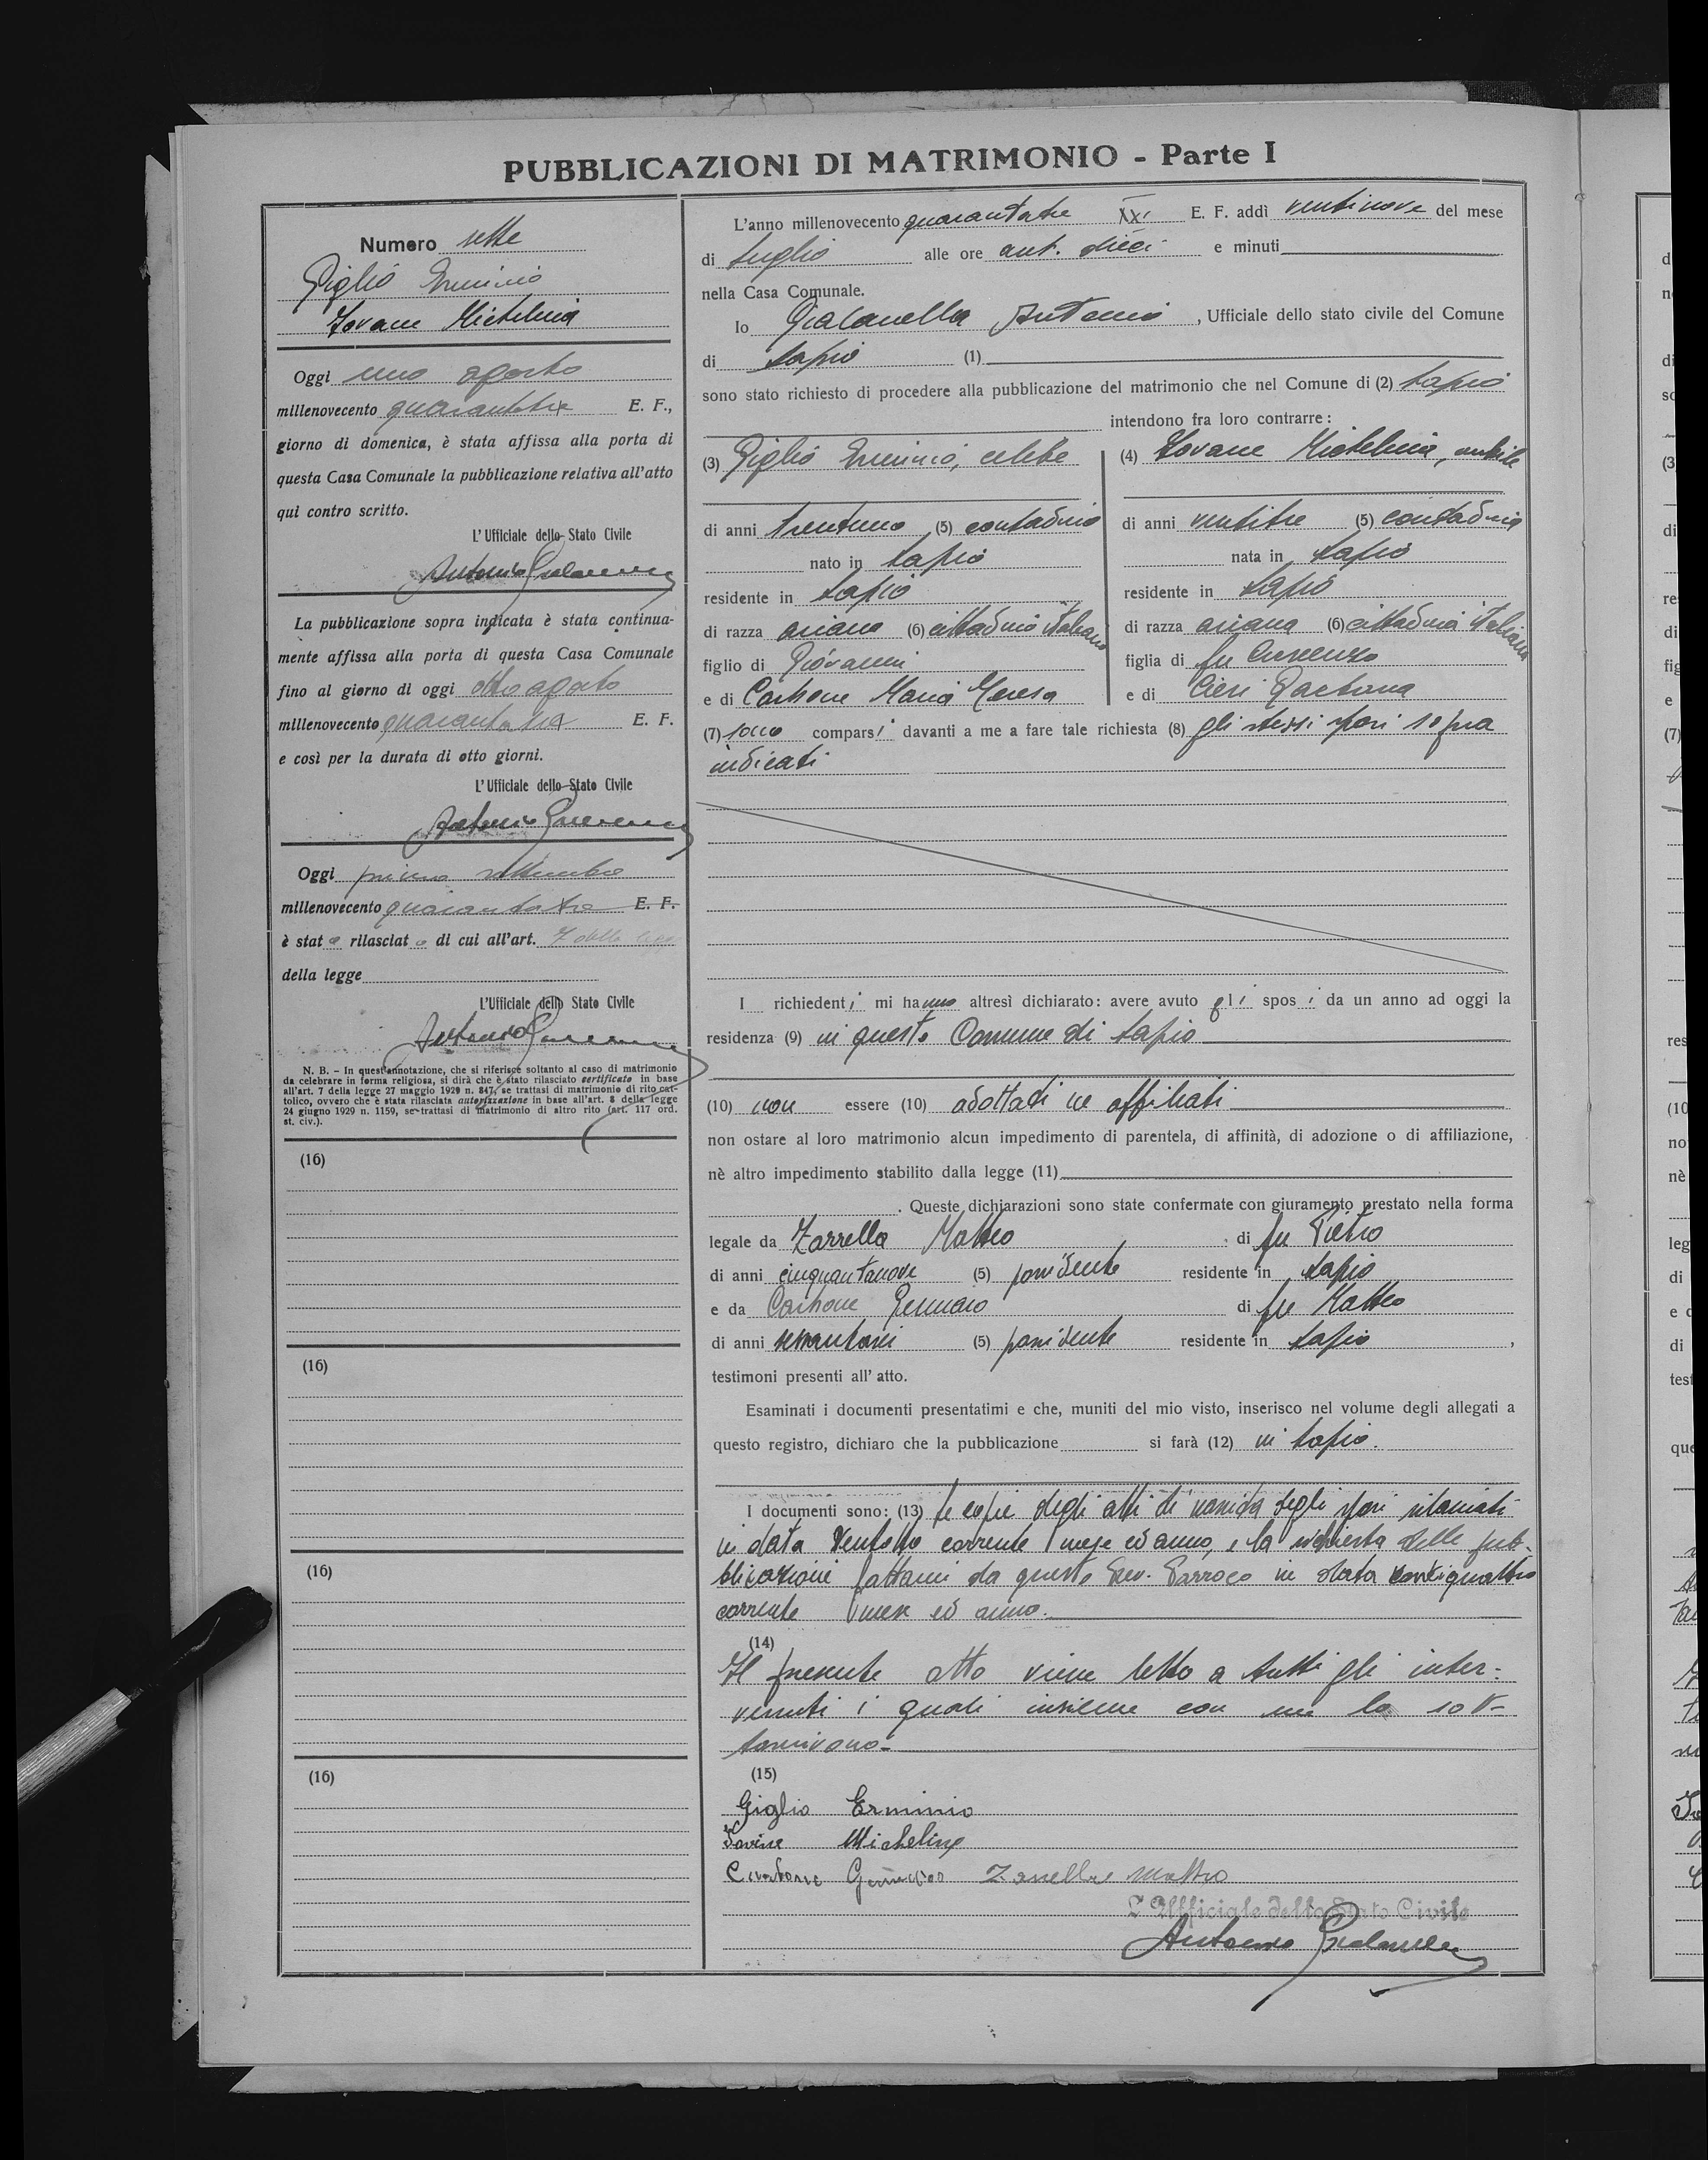 PUBBLICAZIONI DI MATRIMONIO - Parte I
Numero sette
Giglio Erminio
Iovane Michelina
Oggi uno agosto
millenovecento quarantatre E. F.,
giorno di domenica, è stata affissa alla porta di
questa Casa Comunale la pubblicazione relativa all'atto
qui contro scritto.
L'Ufficiale dello Stato Civile
Antonio Gialanella
La pubblicazione sopra indicata è stata continua-
mente affissa alla porta di questa Casa Comunale
fino al giorno di oggi otto agosto
millenovecento quarantatre E. F.
e così per la durata di otto giorni.
L'Ufficiale dello Stato Civile
Antonio Gialanella
Oggi primo settembre
millenovecento quarantatre E. F.
è stato rilasciato di cui all'art. 7 della legge
della legge
L'Ufficiale dello Stato Civile
Antonio Gialanella
N. B. - In quest'annotazione, che si riferisce soltanto al caso di matrimonio
da celebrare in forma religiosa, si dirà che è stato rilasciato certificato in base
all'art. 7 della legge 27 maggio 1929 n. 847, se trattasi di matrimonio di rito cat-
tolico, ovvero che è stata rilasciata autorizzazione in base all'art. 8 della legge
24 giugno 1929 n. 1159, se trattasi di matrimonio di altro rito (art. 117 ord.
st. civ.).
(16)
(16)
(16)
(16)
L'anno millenovecento quarantatre XXI E. F. addì ventinove del mese
di luglio alle ore ant. dieci e minuti
nella Casa Comunale.
Io Gialanella Antonio, Ufficiale dello stato civile del Comune
di Lapio (1)
sono stato richiesto di procedere alla pubblicazione del matrimonio che nel Comune di (2) Lapio
intendono fra loro contrarre:
(3) Giglio Erminio, celibe
di anni trentuno (5) contadino
nato in Lapio
residente in Lapio
di razza ariana (6) cittadino italiano
figlio di Giovanni
e di Carbone Maria Teresa
(4) Iovane Michelina, nubile
di anni ventitre (5) contadina
nata in Lapio
residente in Lapio
di razza ariana (6) cittadina italiana
figlia di fu
e di Cieri Gaetana
(7) sono comparsi davanti a me a fare tale richiesta (8) gli stessi sposi sopra
indicati
I richiedenti mi hanno altresì dichiarato: avere avuto gli sposi da un anno ad oggi la
residenza (9) in questo Comune di Lapio
(10) non essere (10) adottati ne affiliati
non ostare al loro matrimonio alcun impedimento di parentela, di affinità, di adozione o di affiliazione,
nè altro impedimento stabilito dalla legge (11)
. Queste dichiarazioni sono state confermate con giuramento prestato nella forma
legale da Zarrella Matteo di fu Pietro
di anni cinquantanove (5) possidente residente in Lapio
e da Carbone Gennaro di fu Matteo
di anni sessantasei (5) possidente residente in Lapio,
testimoni presenti all'atto.
Esaminati i documenti presentatimi e che, muniti del mio visto, inserisco nel volume degli allegati a
questo registro, dichiaro che la pubblicazione si farà (12) in Lapio.
I documenti sono: (13) le copie degli atti di nascita degli sposi rilasciati
in data ventotto corrente mese ed anno, e la richiesta delle pub-
blicazioni fattami da questo Rev. Parroco in data ventiquattro
corrente mese ed anno.
(14)
Il presente atto viene letto a tutti gli inter-
venuti i quali insieme con me lo sot-
toscrivono-
(15)
Giglio Erminio
Iovine Michelina
Carbone Gennaro Zarella Matteo
L'Ufficiale dello Stato Civile
Antonio Gialanella